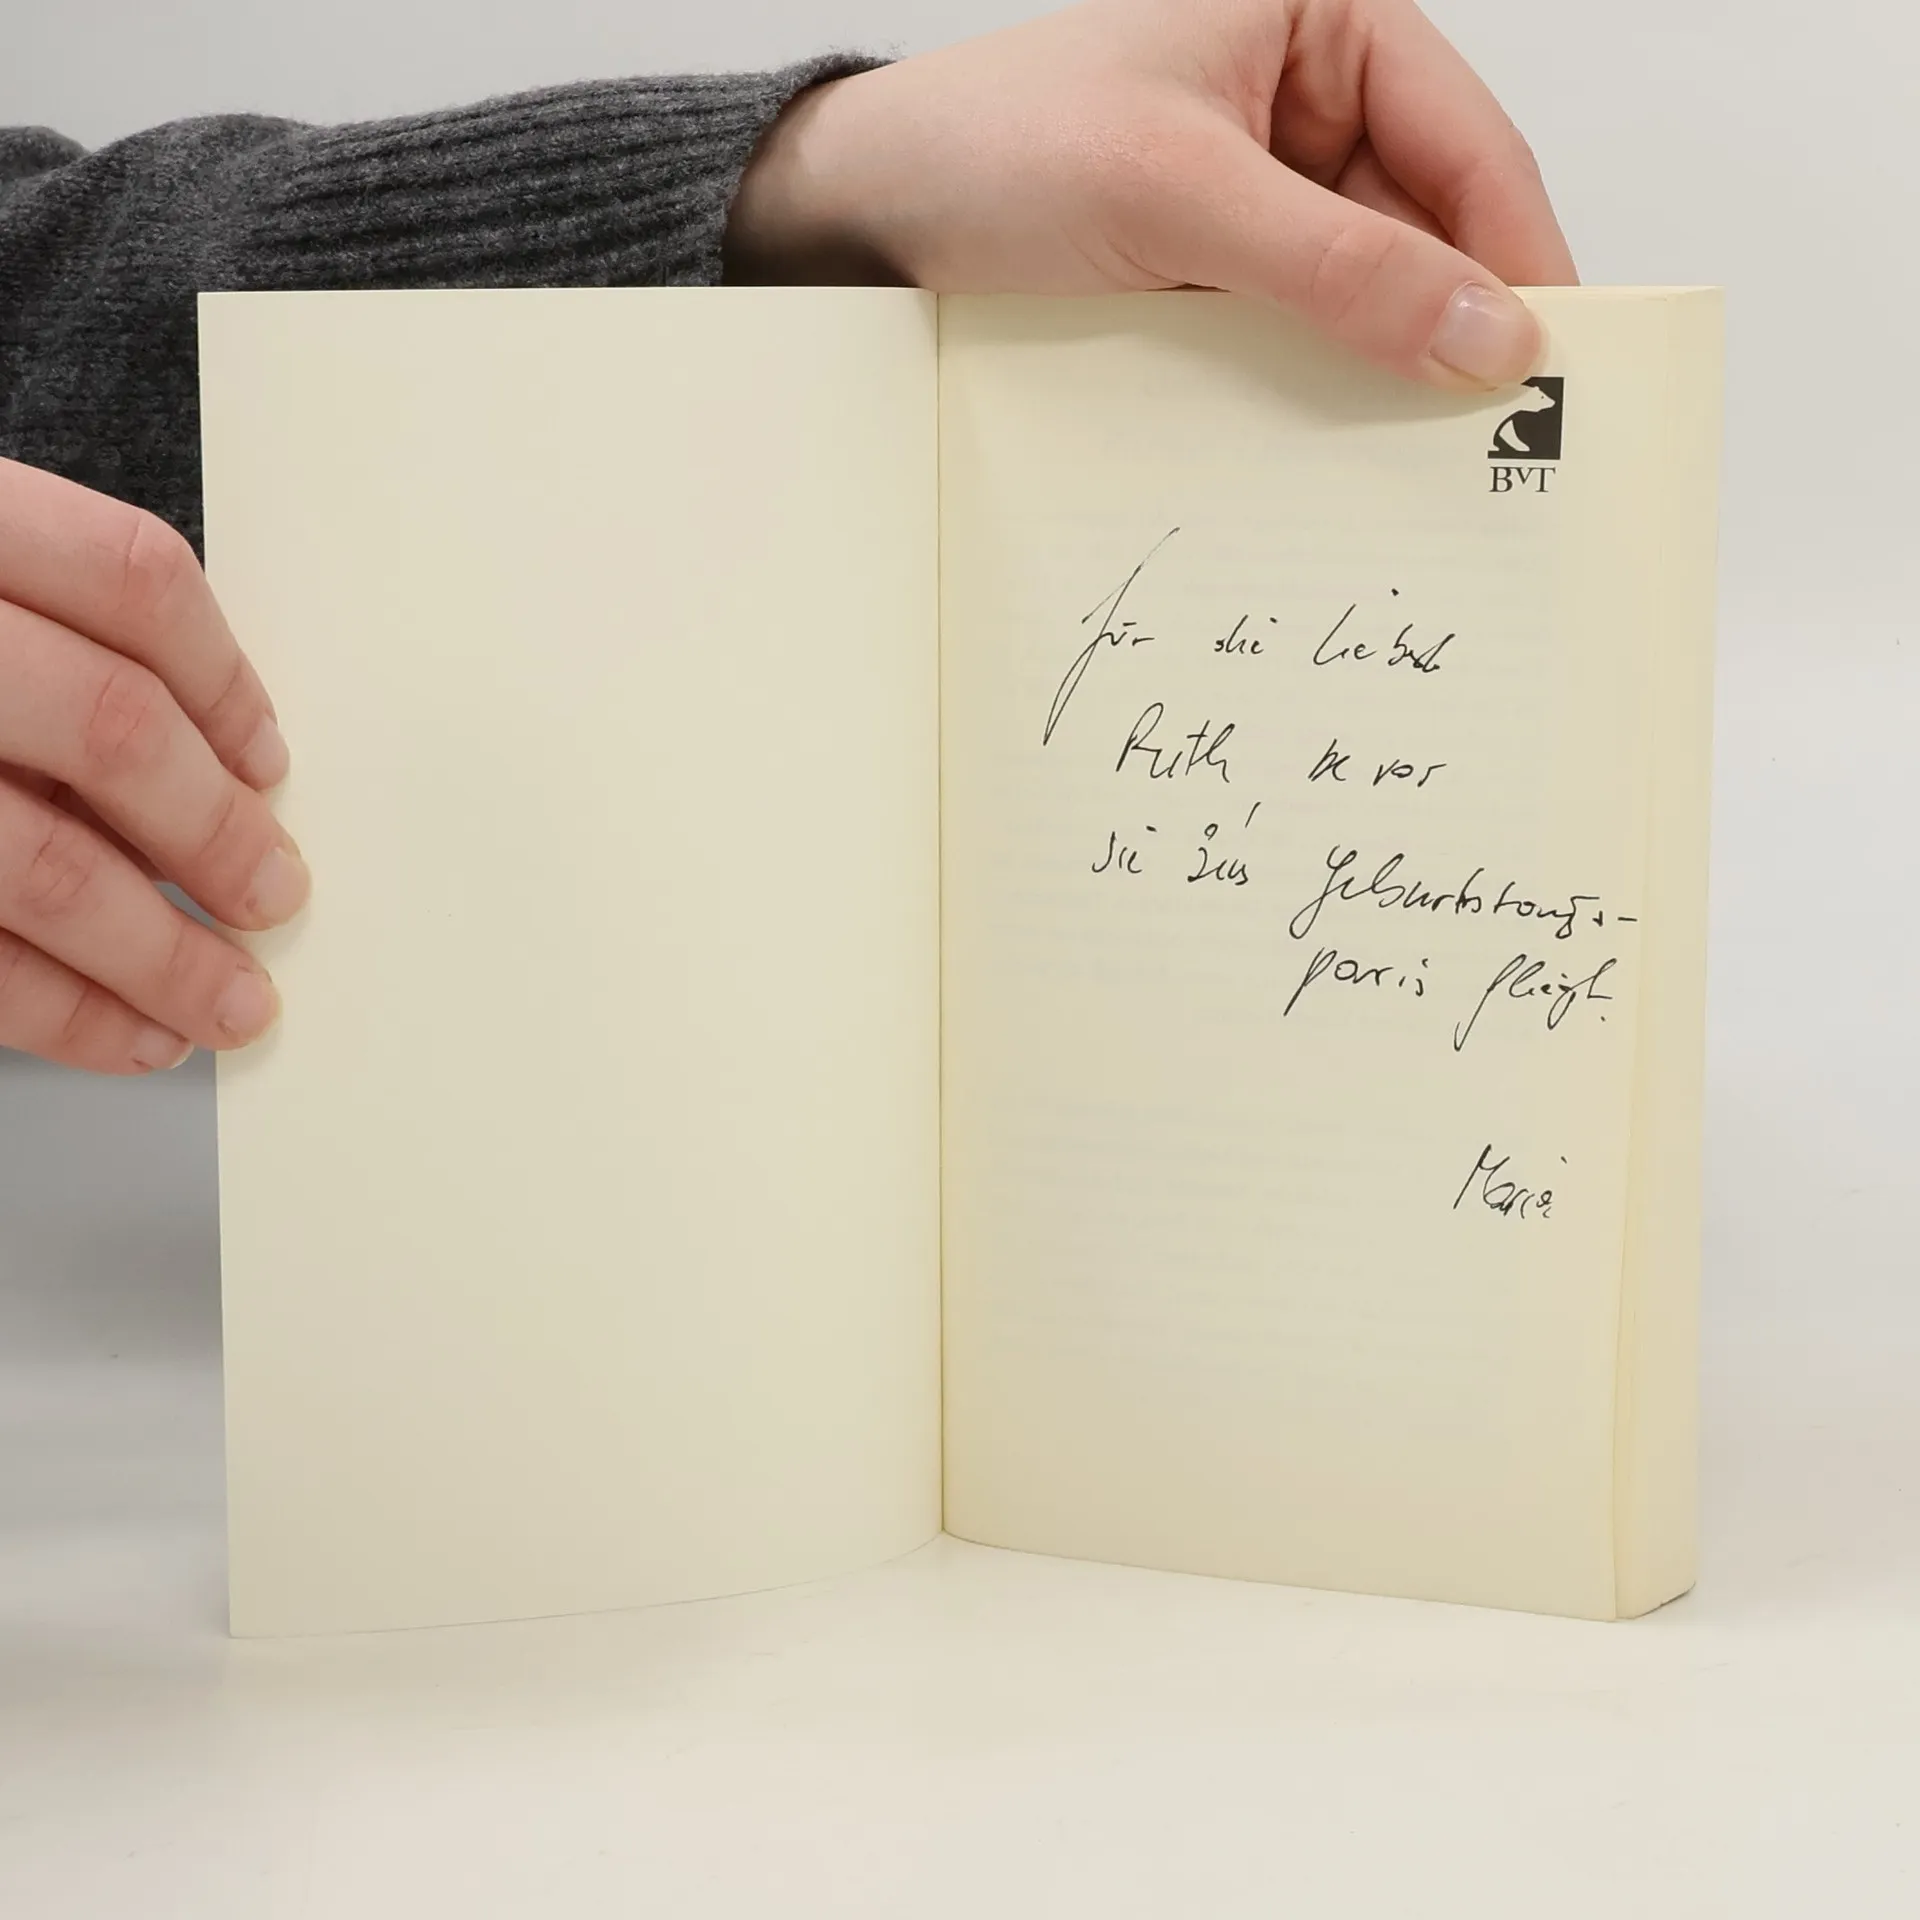 BVT
für die liebste
Ruth bevor
sie ins Geburtstags-
paris fliegt.
Maria